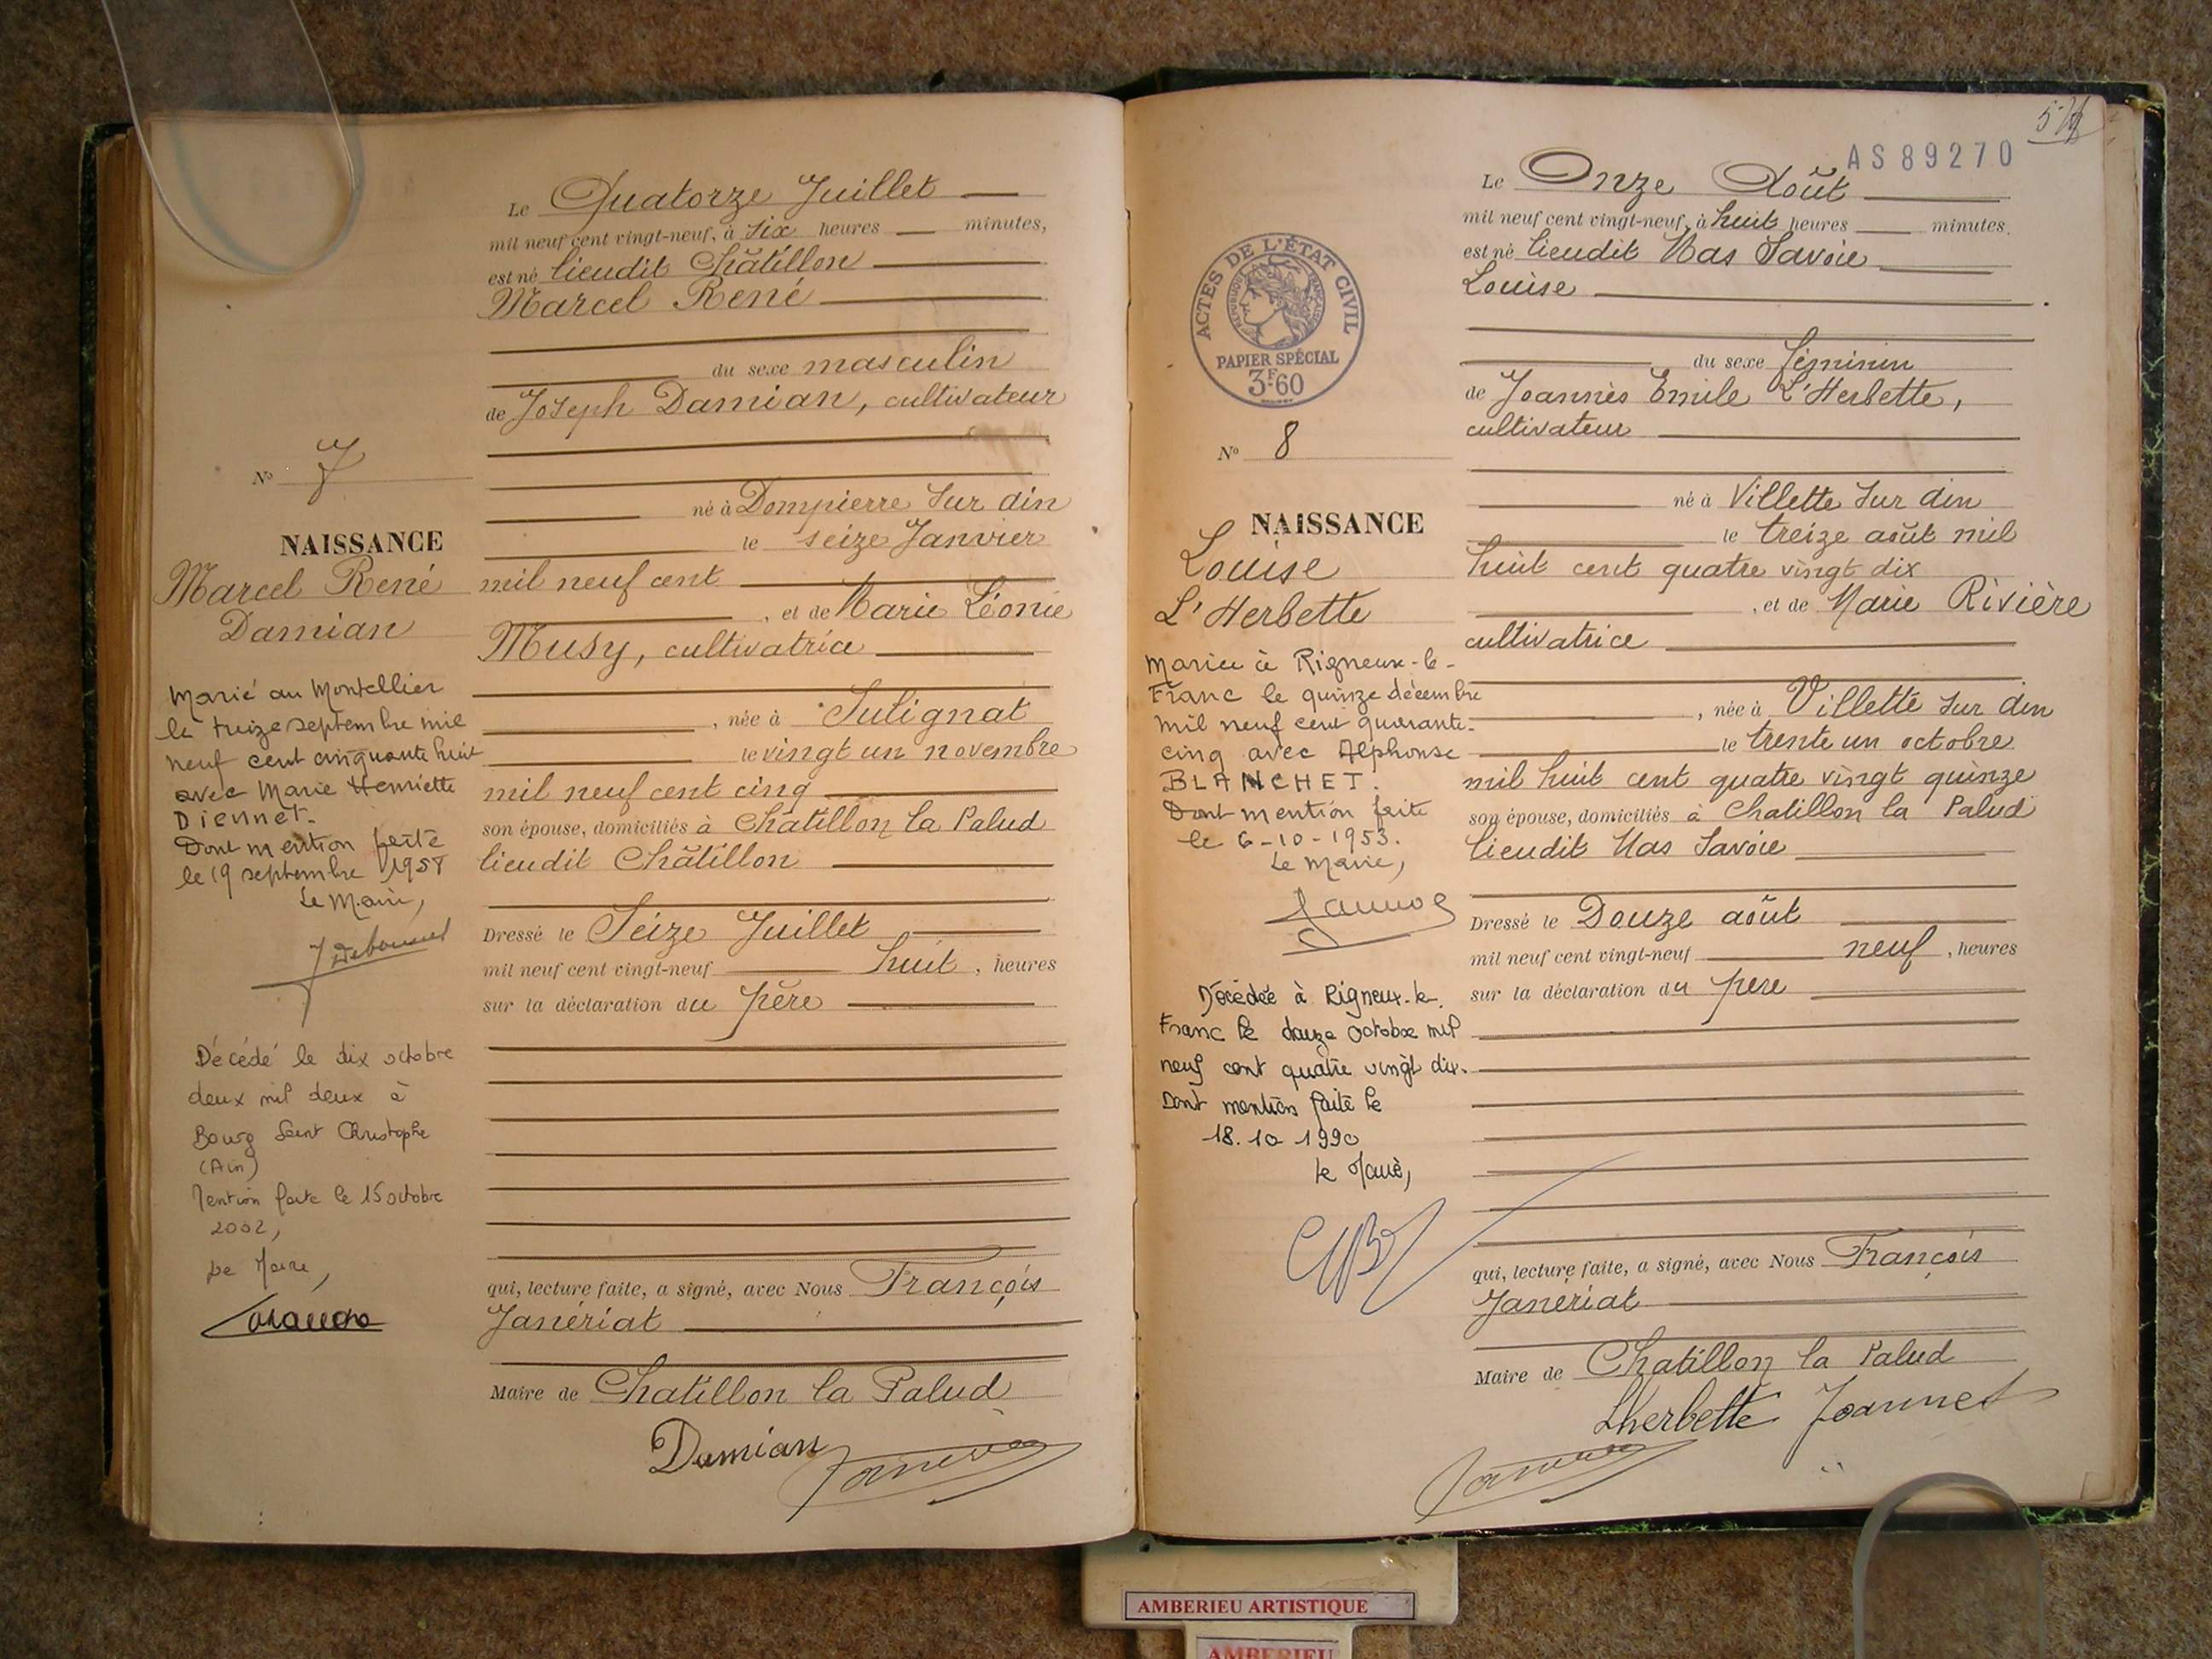 Le Quatorze Juillet
mil neuf cent vingt-neuf, à six heures minutes,
est né lieudit Châtillon
Marcel René
du sexe masculin
de Joseph Damian, cultivateur
né à Dompierre sur ain
le seize Janvier
mil neuf cent
, et de Marie Léonie
Musy, cultivatrice
, née à Sulignat
le vingt un novembre
mil neuf cent cinq
son épouse, domiciliés à Chatillon la Palud
lieudit Châtillon
Dressé le Seize Juillet
mil neuf cent vingt-neuf huit, heures
sur la déclaration du père
qui, lecture faite, a signé, avec Nous François
Janériat
Maire de Chatillon la Palud
Damian
No 7
NAISSANCE
Marcel René
Damian
Marié au Montellier
le treize septembre mil
neuf cent cinquante huit
avec Marie Henriette
Diennet.
Dont mention faite
le 19 septembre 1958
Le Maire,
Décédé le dix octobre
deux mil deux à
Bourg Saint Christophe
(Ain)
Mention faite le 15 octobre
2002,
Le Maire,
AS89270
Le Onze Août
mil neuf cent vingt-neuf, à huit heures minutes.
est né lieudit Mas Savoie
Louise
du sexe féminin
de Joannès Emile L'Herbette,
cultivateur
né à Villette sur ain
le treize août mil
huit cent quatre vingt dix
, et de Marie Rivière
cultivatrice
, née à Villette sur ain
le trente un octobre
mil huit cent quatre vingt quinze
son épouse, domiciliés à Chatillon la Palud
lieudit Mas Savoie
Dressé le Douze août
mil neuf cent vingt-neuf neuf, heures
sur la déclaration du père
qui, lecture faite, a signé, avec Nous François
Janériat
Maire de Chatillon la Palud
Lherbette Joannes
ACTES DE L'ÉTAT CIVIL
RÉPUBLIQUE FRANÇAISE
PAPIER SPÉCIAL
3F60
No 8
NAISSANCE
Louise
L'Herbette
Mariée à Rigneux-le-
Franc le quinze décembre
mil neuf cent quarante-
cinq avec Alphonse
BLANCHET.
Dont mention faite
le 6-10-1953.
Le Maire,
Décédée à Rigneux-le-
Franc le douze octobre mil
neuf cent quatre vingt dix.
Dont mention faite le
18.10 1990
Le Maire,
AMBERIEU ARTISTIQUE
AMBERIEU